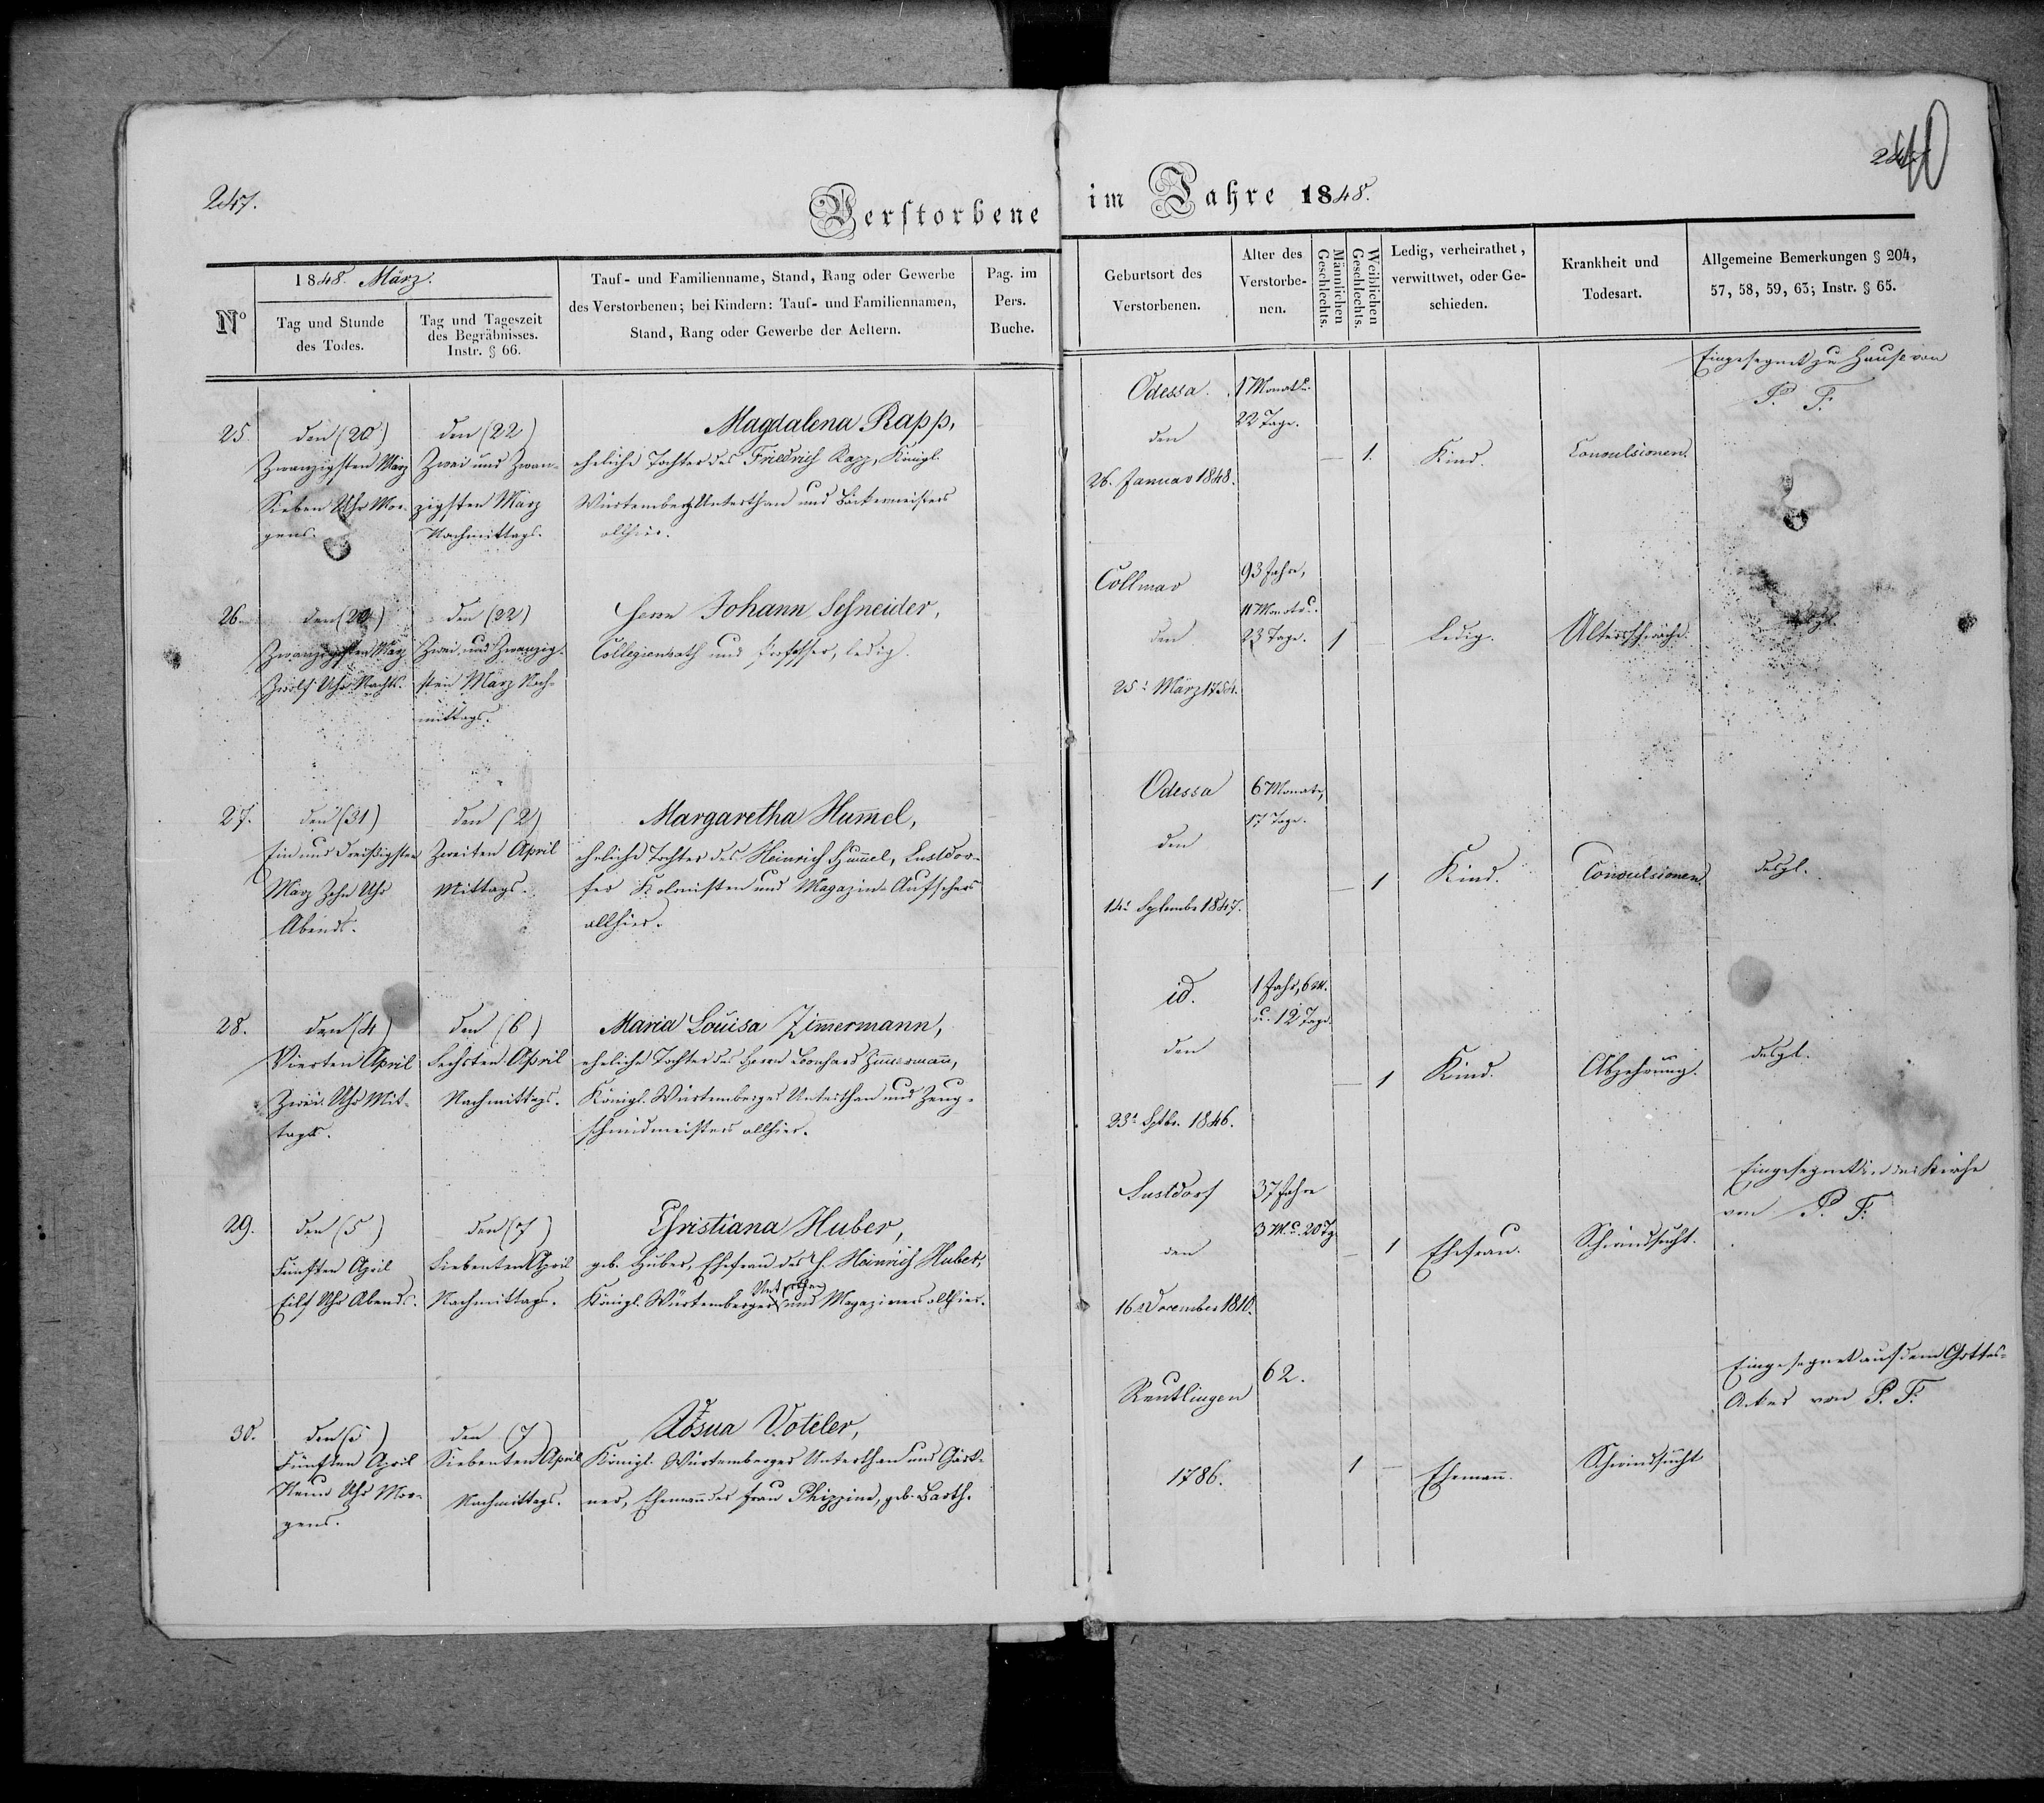 247.
Verstorbene im Jahre 1848.
40
No
1848. März.
Tag und Stunde
des Todes.
Tag und Tageszeit
des Begräbnisses.
Instr. § 66.
Tauf- und Familienname, Stand, Rang oder Gewerbe
des Verstorbenen; bei Kindern: Tauf- und Familiennamen,
Stand, Rang oder Gewerbe der Aeltern.
Pag. im
Pers.
Buche.
Geburtsort des
Verstorbenen.
Alter des
Verstorbe-
nen.
Männlichen
Geschlechts.
Weiblichen
Geschlechts.
Ledig, verheirathet,
verwittwet, oder Ge-
schieden.
Krankheit und
Todesart.
Allgemeine Bemerkungen § 204,
57, 58, 59, 63; Instr. § 65.
25.
den (20)
Zwanzigsten März
Sieben Uhr Mor-
gens.
den (22)
Zwei und Zwan-
zigsten März
Nachmittags.
Magdalena Rapp,
eheliche Tochter des Friedrich Rapp, Königl.
Würtemberg. Unterthan und Bäckermeisters
allhier.
Odessa.
den
26. Januar 1848.
1 Monat u.
22 Tage.
1.
Kind.
Convulsionen.
Eingesegnet zu Hause von
P. F.
26.
den (20)
Zwanzigsten März
Zwölf Uhr Nachts.
den (22)
Zwei und Zwanzig-
sten März Nach-
mittags.
Herr Johann Schneider,
Collegienrath und Professor, ledig.
Collmar
den
25t März 1754.
93 Jahre,
11 Monate u.
23 Tage.
1
Ledig.
Altersschwäche.
desgl.
27.
den (31)
Ein und dreißigsten
März Zehn Uhr
Abends.
den (2)
Zweiten April
Mittags.
Margaretha Hum̄el,
eheliche Tochter des Heinrich Hum̄el, Lustdor-
fer Kolonisten und Magazin-Aufsehers
allhier.
Odessa
den
14t September 1847.
6 Monate,
17 Tage.
1
Kind.
Convulsionen.
desgl.
28.
den (4)
Vierten April
Zwei Uhr Mit-
tags.
den (6)
Sechsten April
Nachmittags.
Maria Louisa Zim̄ermann,
eheliche Tochter des Herrn Leonhard Zim̄ermann,
Königl. Würtemberger Unterthan und Zeug-
schmidmeisters allhier.
id.
den
23t Sptbr. 1846.
1 Jahr, 6 M.
u. 12 Tage.
1
Kind.
Abzehrung.
desgl.
29.
den (5)
Fünften April
Eilf Uhr Abends.
den (7)
Siebenten April
Nachmittags.
Christiana Huber,
geb. Huber, Ehefrau des H. Heinrich Huber,
Königl. Würtemberger Unterthan und Magaziners allhier.
Lustdorf
den
16t December 1810.
37 Jahre
3 M. u. 20 Tg.
1
Ehefrau.
Schwindsucht.
Eingesegnet in der Kirche
von P. F.
30.
den (5)
Fünften April
Neun Uhr Mor-
gens.
den (7)
Siebenten April
Nachmittags.
Josua Voteler,
Königl. Würtemberger Unterthan und Gärt-
ner, Ehemann der Frau Philippine, geb. Barth.
Reutlingen
1786.
62.
1
Ehemann.
Schwindsucht
Eingesegnet auf dem Gottes-
Acker von P. F.